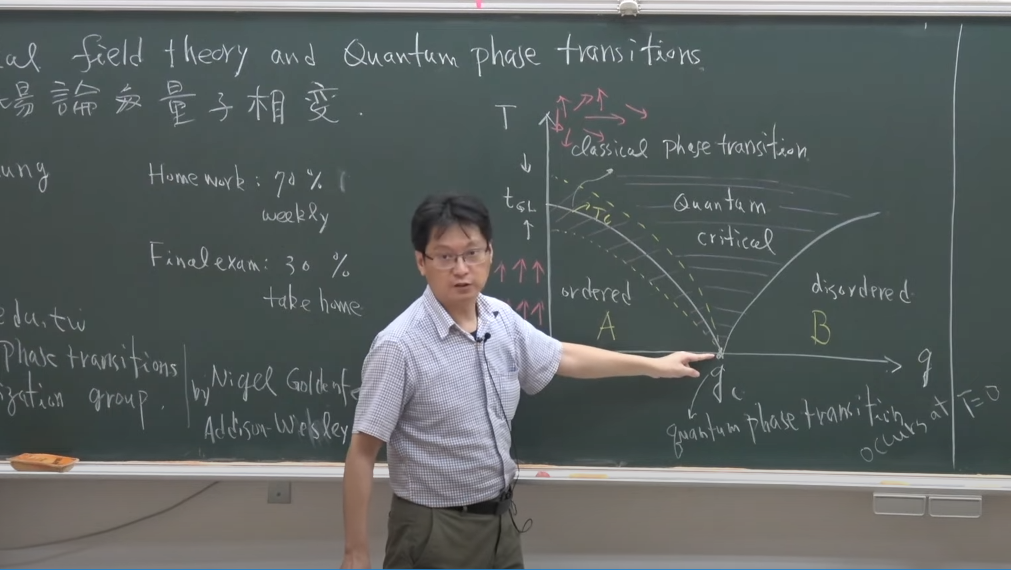 al field theory and Quantum phase transitions
場論與量子相変.
ung
Homework: 70%
weekly
Final exam: 30 %
take home
edu.tw
phase transitions
ization group.
by Nigel Goldenf
Addison-Wesley
T
classical phase transition
Tc
Quantum
critical
ordered
A
disordered
B
g
gc
quantum phase transition
occurs at T=0